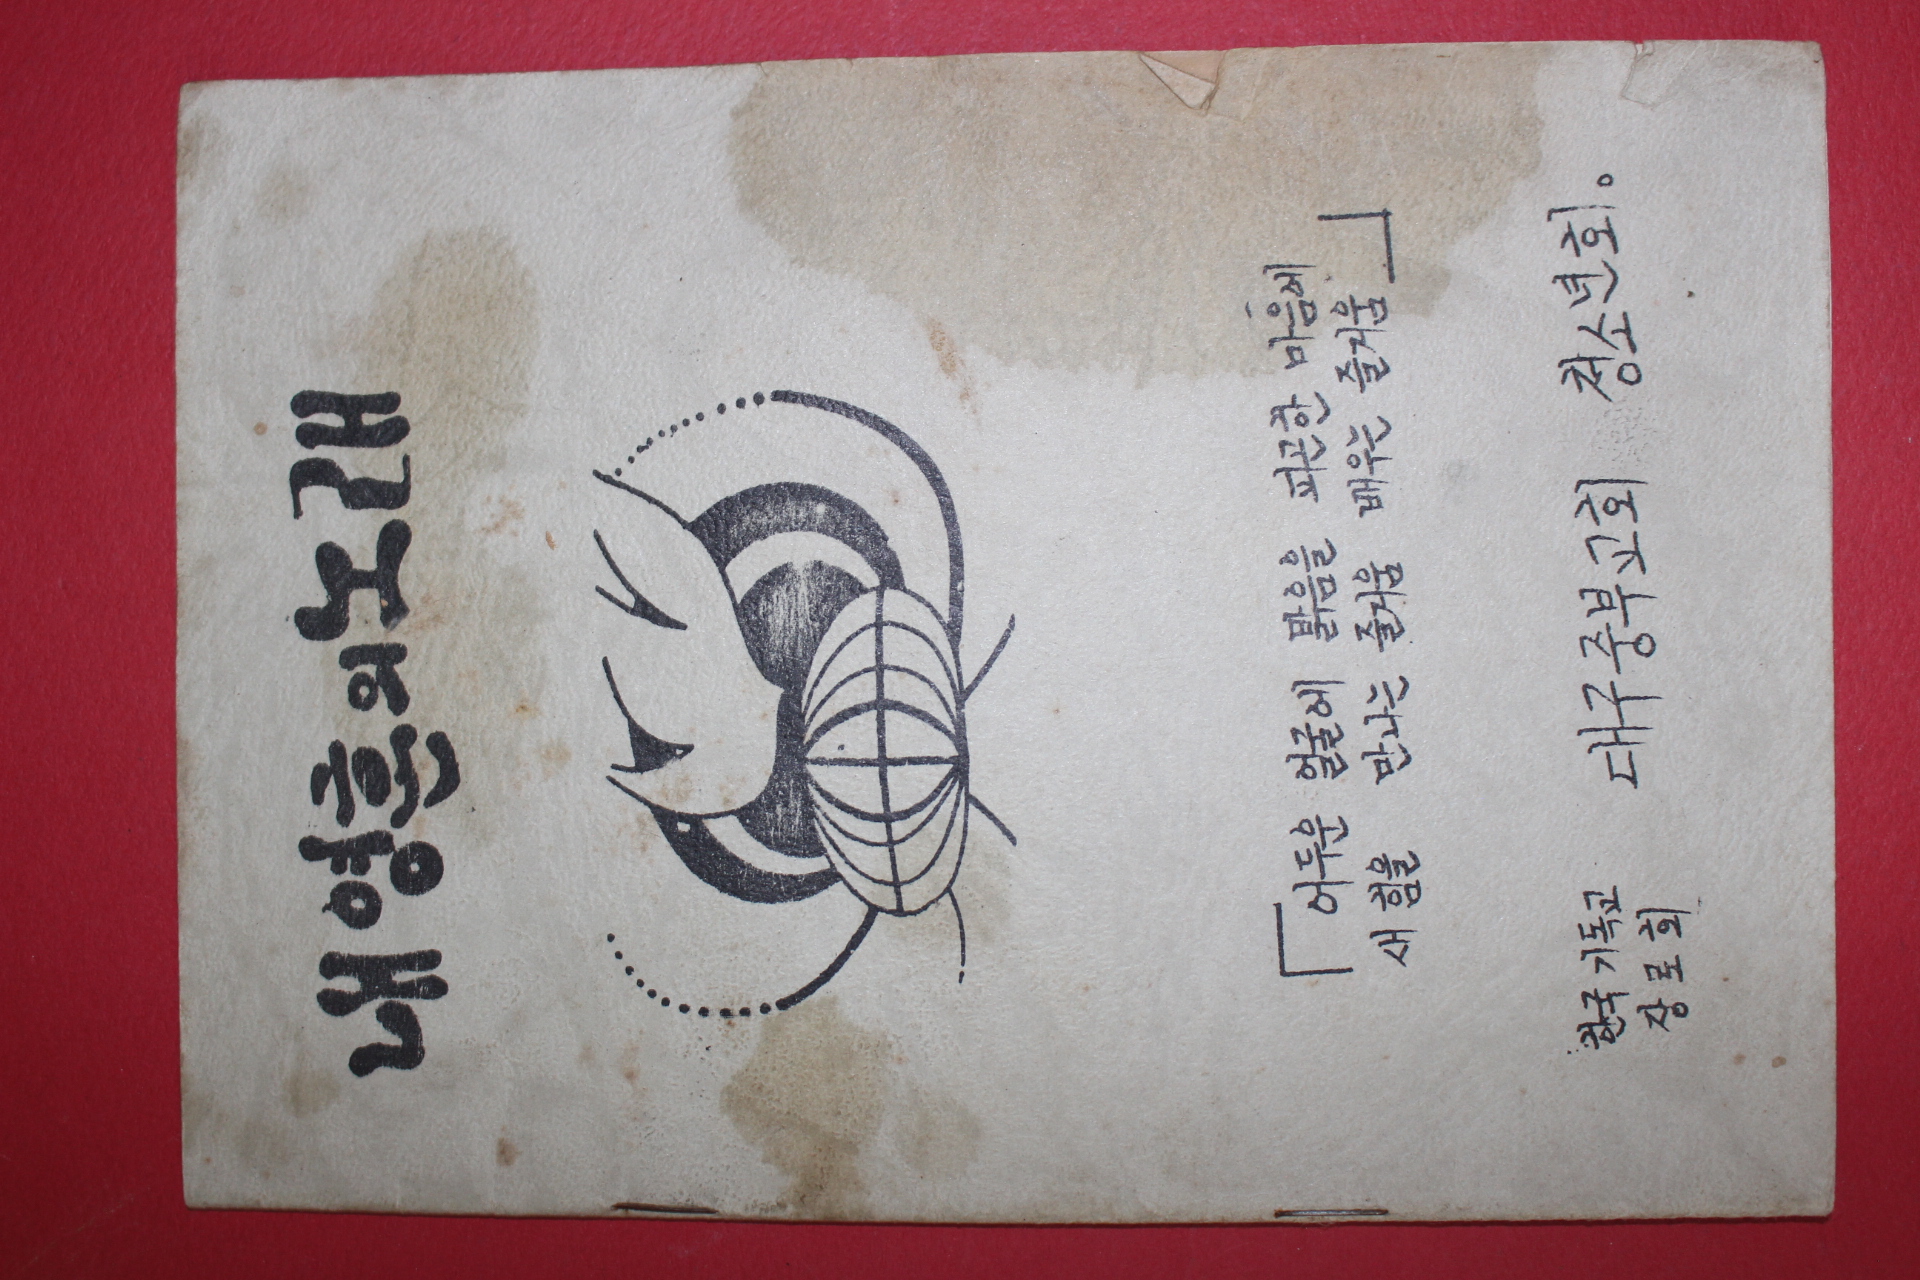 내 영혼의 노래
「어두운 얼굴에 밝음을 피곤한 마음에
새 힘을 만나는 즐거움 배우는 즐거움」
한국기독교
장로회
대구중부교회 청소년회。